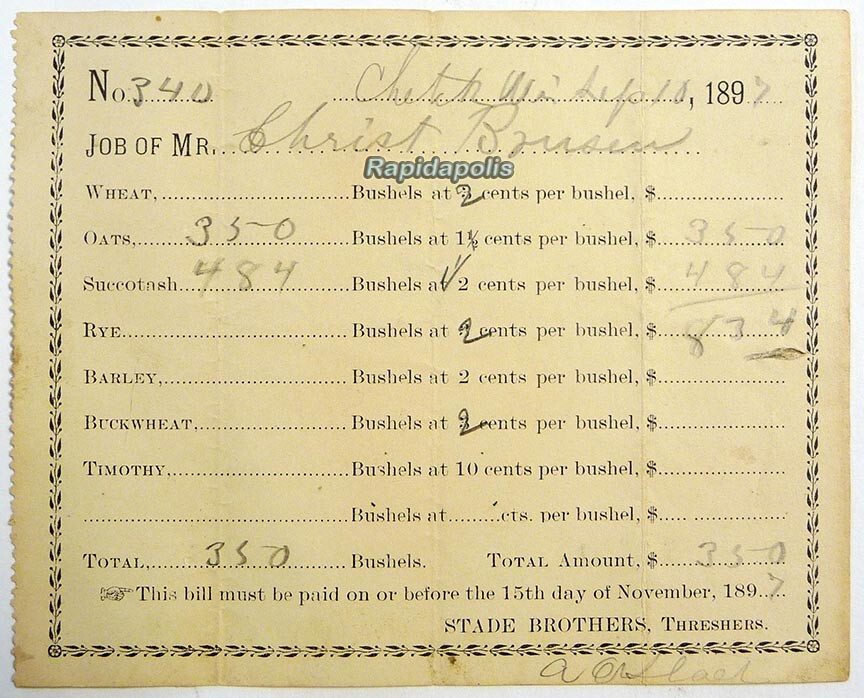 No. 340 Sep 10, 1897
JOB OF MR. Christ
Rapidapolis
WHEAT, Bushels at 2 cents per bushel, $
OATS, 350 Bushels at 1½ cents per bushel, $ 350
Succotash 484 Bushels at 2 cents per bushel, $ 484
RYE Bushels at 2 cents per bushel, $ 834
BARLEY, Bushels at 2 cents per bushel, $
BUCKWHEAT, Bushels at 2 cents per bushel, $
TIMOTHY, Bushels at 10 cents per bushel, $
Bushels at cts. per bushel, $
TOTAL, 350 Bushels. TOTAL AMOUNT, $ 350
☞ This bill must be paid on or before the 15th day of November, 1897
STADE BROTHERS, THRESHERS.